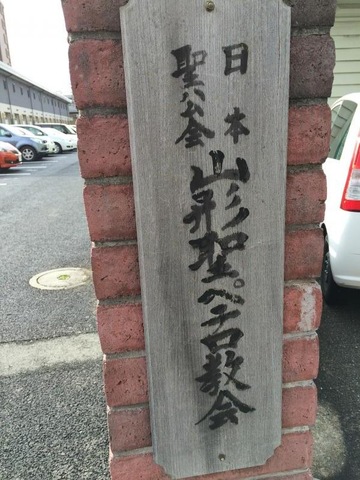 日本
聖公会
山形聖ペテロ教会